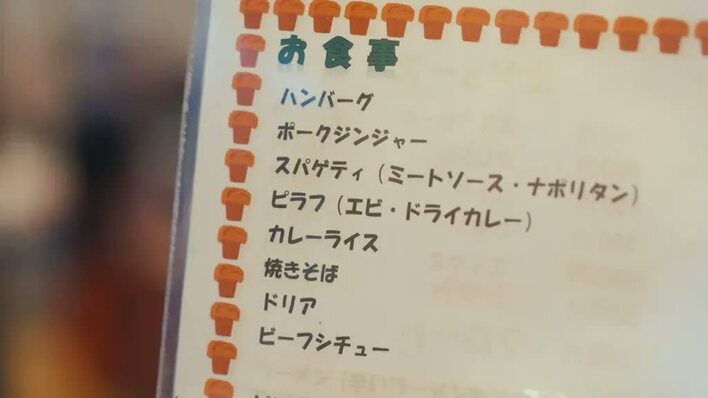 お食事
ハンバーグ
ポークジンジャー
スパゲティ（ミートソース・ナポリタン）
ピラフ（エビ・ドライカレー）
カレーライス
焼きそば
ドリア
ビーフシチュー